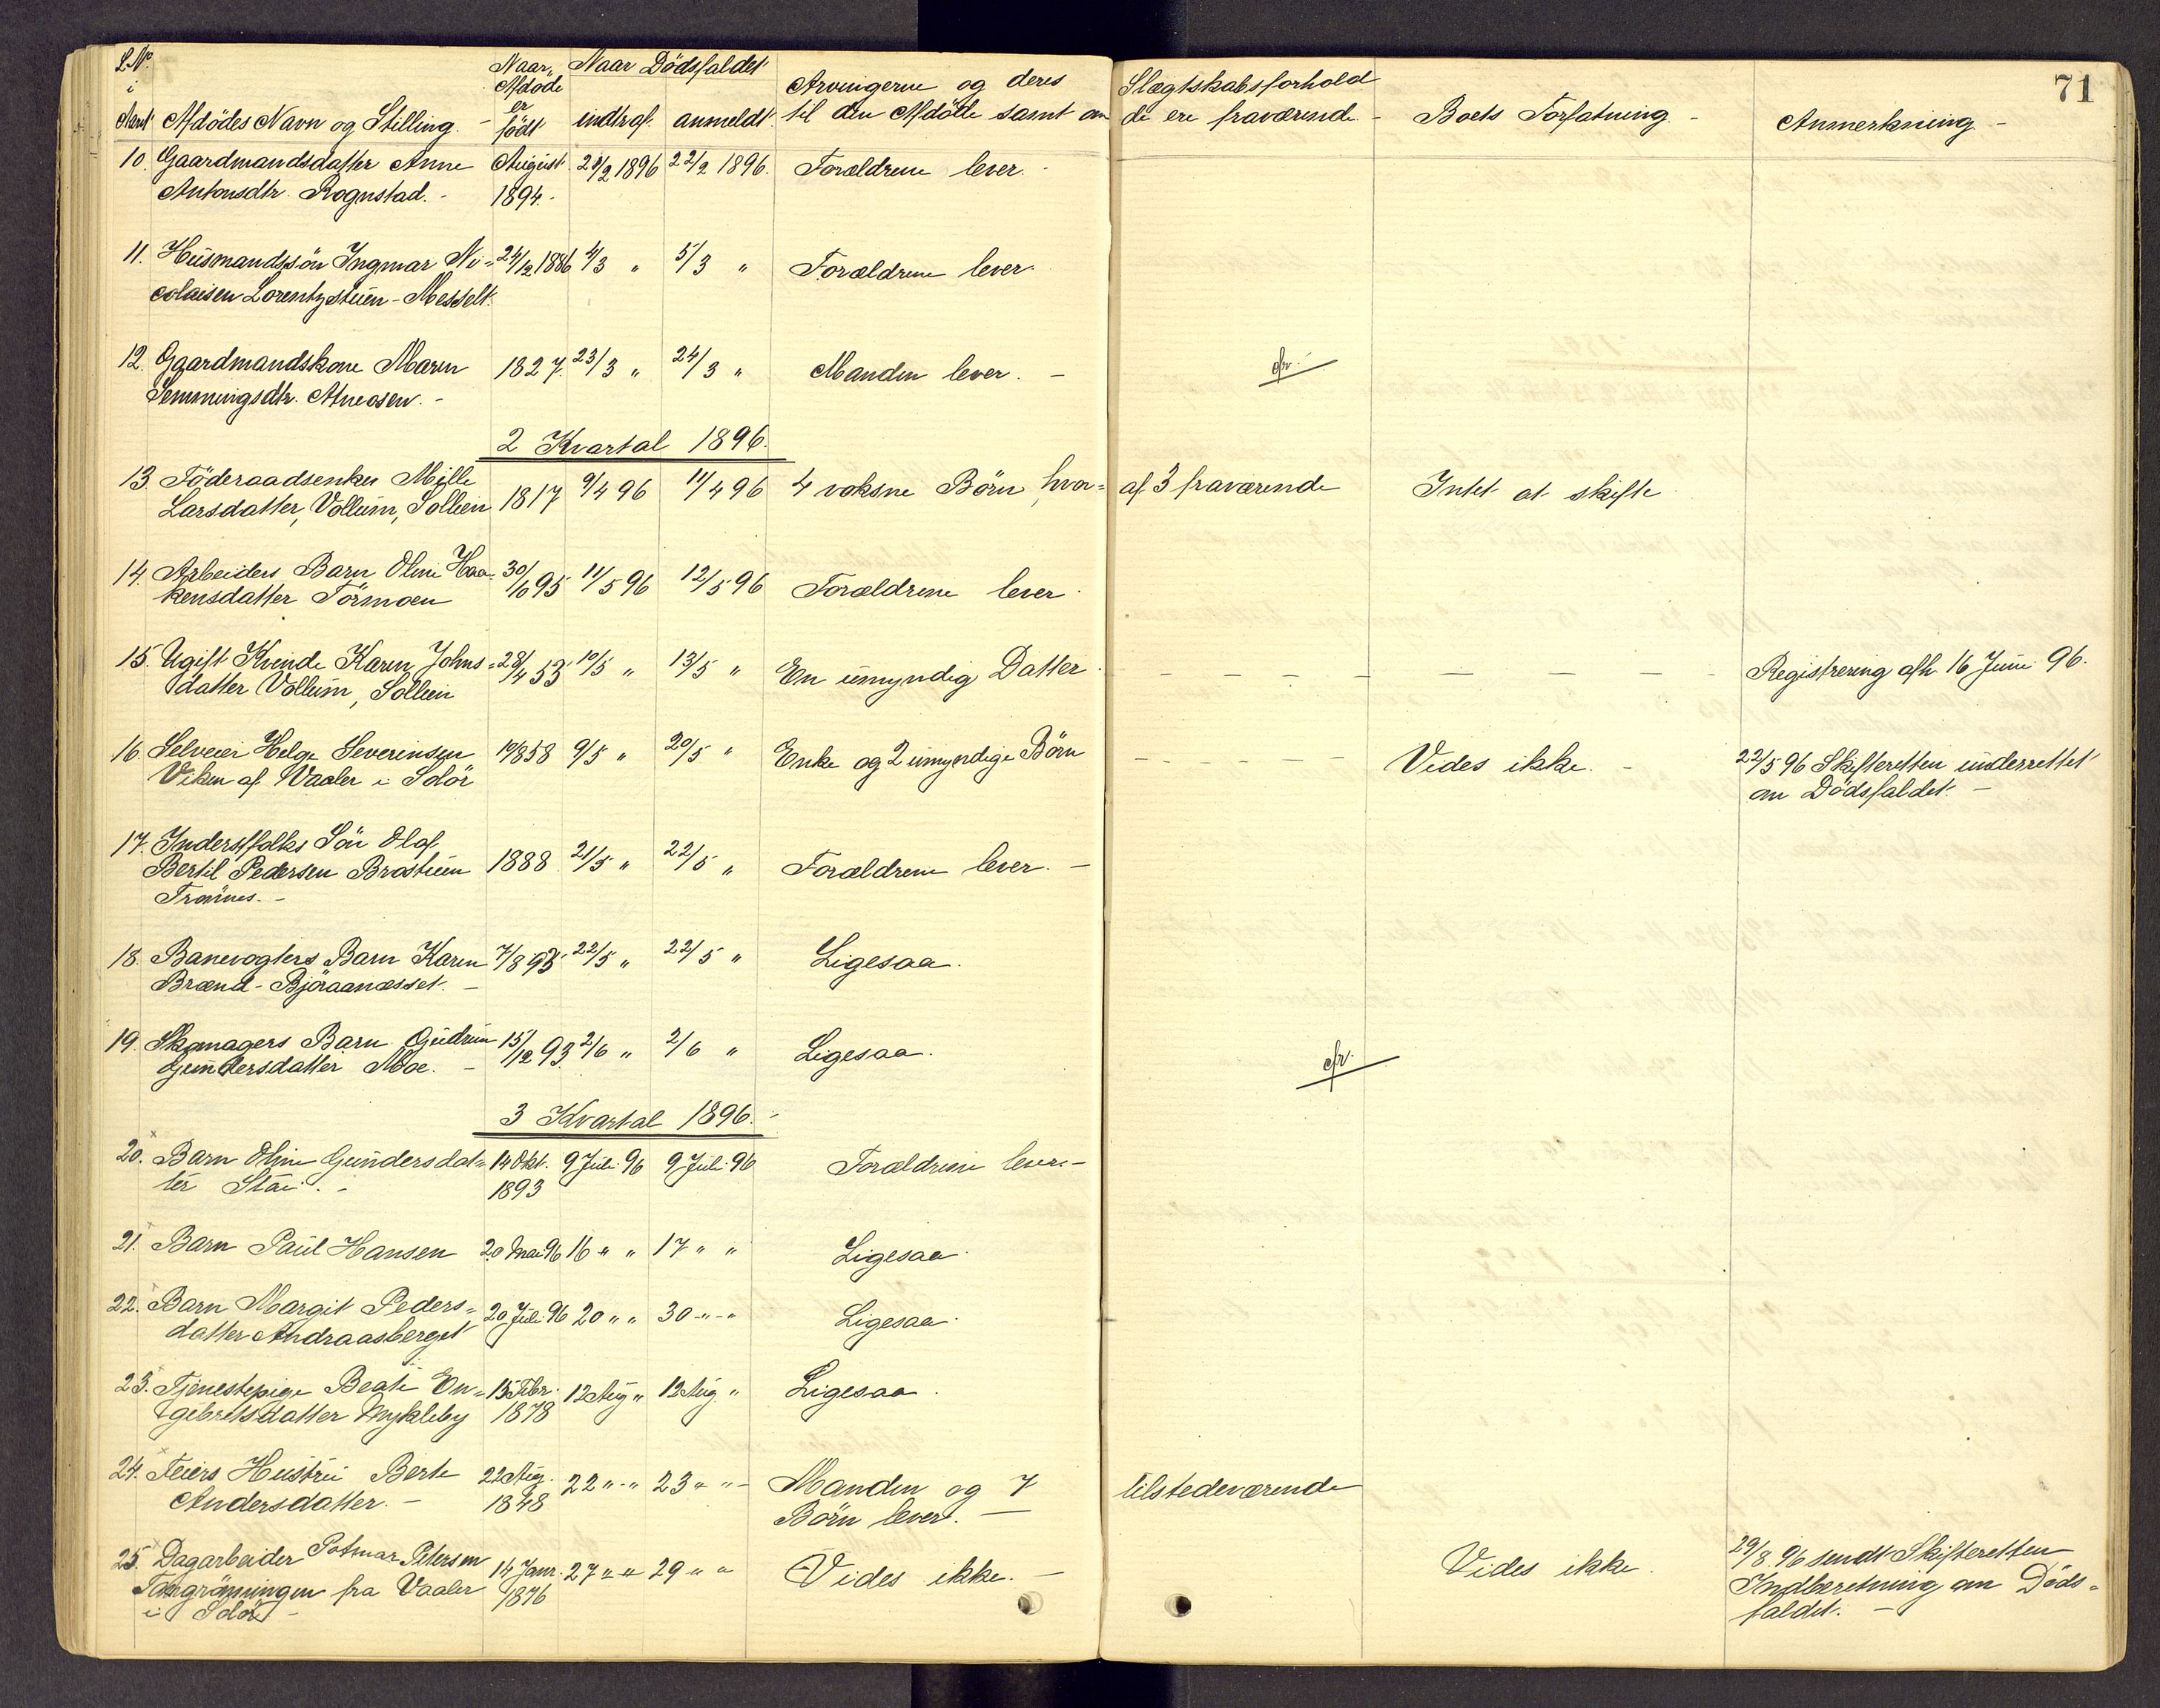 71
L.No. Naar Naar Dödsfaldet
i Afdöde Arvingerne og deres Slægtskabsforhold
Afdödes Navn og Stilling - er født indtraf. anmeldt. til den Afdöde samt om de ere fraværende. - Boets Forfatning. - Anmerkning -
10. Gaardmandsdatter Anne August 21/2 1896 22/2 1896. Forældrene lever. -
Antonsdtr. Rognstad. - 1894. -
11. Husmandssön Ingmar Ni= 24/12 1886 4/3 " 5/3 " Forældrene lever.
colaisen Lorentzstuen - Messelt.
12. Gaardmandskone Maren 1827. 23/3 " 24/3 " Manden lever. - cfr.
Semmingsdtr. Atneosen. -
2 Kvartal 1896.
13. Föderaadsenke Mille 1817 9/4 96 11/4 96 4 voksne Börn, hvor= af 3 fraværende Intet at skifte
Larsdatter, Vollum, Sollien
14. Arbeiders Barn Oline Haa= 30/10 95 11/5 96 12/5 96 Forældrene lever.
kensdatter Törmoen
15. Ugift Kvinde Karen Johns= 28/4 53 10/5 " 13/5 " En umyndig Datter. - - - - - - - - Registrering afh. 16 Juni 96.
datter Vollum, Sollien
16. Selveier Helge Severinsen 10/8 58 9/5 " 20/5 " Enke og 2 umyndige Börn - - - - - - Vides ikke. - 22/5 96 Skifteretten underrettet
Viken af Vaaler i Solör om Dödsfaldet. -
17. Inderstfolks Sön Olaf
Bertil Pedersen Brostuen 1888 21/5 " 22/5 " Forældrene lever. -
Trønnes. -
18. Banevogters Barn Karen 7/8 95 22/5 " 22/5 " Ligesaa.
Brænd - Björaanæsset. -
19. Skomagers Barn Gudrun 15/12 93. 2/6 " 2/6 " Ligesaa. cfr.
Gundersdatter Moe. -
3 Kvartal 1896. -
20. Barn Oline Gundersdat= 14 Okt. 9 Juli 96 9 Juli 96 Forældrene lever. -
ter Stai. - 1893
21. Barn Paul Hansen 20. Mai 96 16 " " 17 " " Ligesaa.
22. Barn Margit Peders= 20 Juli 96 20 " " 30 - " - " Ligesaa.
datter Andraasberget
23. Tjenestepige Beate En= 15 Febr. 12 Aug " 12 Aug. " Ligesaa.
gebretsdatter Mykleby 1878
24. Feiers Hustru Berte 22 Aug. 22 " - " 23 " " - Manden og 7 tilstedeværende
Andersdatter. - 1848 Börn lever. -
25. Dagarbeider Potmar Petersen 14 Janr. 27 " " 29 " " Vides ikke. - Vides ikke. 29/8. 96 sendt Skifteretten
fra Vaaler 1876 Indberetning om Döds=
i Solör - faldet. -